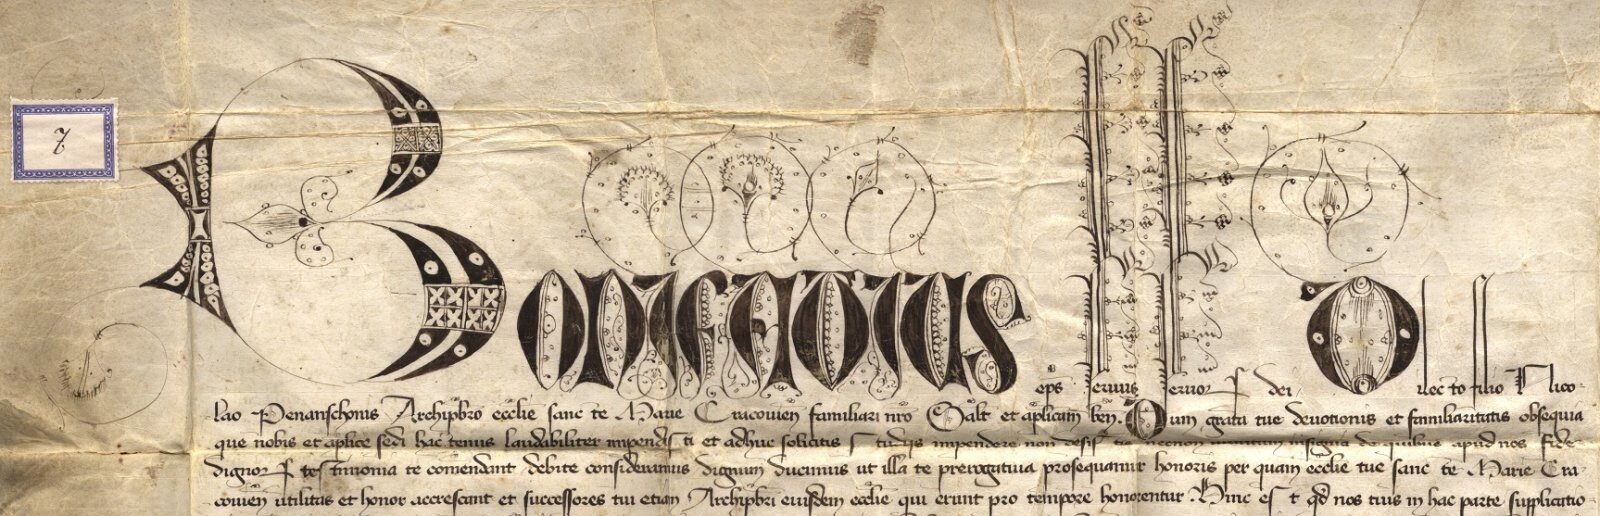 7
Bonifatius eps servus servor dei Dilecto filio Nico
lao Penanschonis Archipbro ecclie sancte Marie Cracovien familiari nro Salt et aplicam ben. Dum grata tue devotionis et familiaritatis obsequia
que nobis et aplice sedi hactenus laudabiliter impendisti et adhuc solicitis studijs impendere non desistis necnon insignia de quibus apud nos fide
dignor testimonia te comendant debite consideramus dignum ducimus ut illa te prerogativa prosequamur honoris per quam ecclie tue sancte Marie Cra
covien utilitas et honor accrescant et successores tui etiam Archipbri eiusdem ecclie qui erunt pro tempore honorentur Hinc est qd nos tuis in hac parte supplicatio